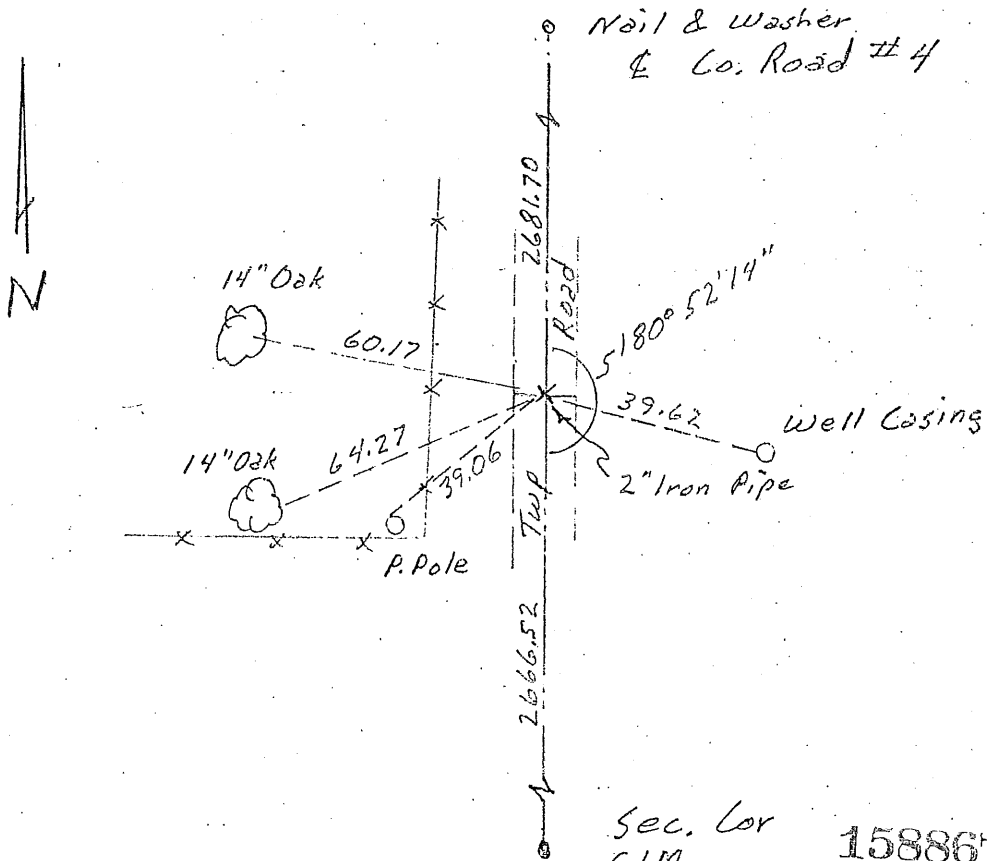 Nail & Washer
℄ Co. Road # 4
N
2681.70
14" Oak
60.17
Road
180° 52' 14"
39.62
Well Casing
14" Oak
64.27
39.06
2" Iron Pipe
Twp
P. Pole
2666.52
Sec. Cor
15886